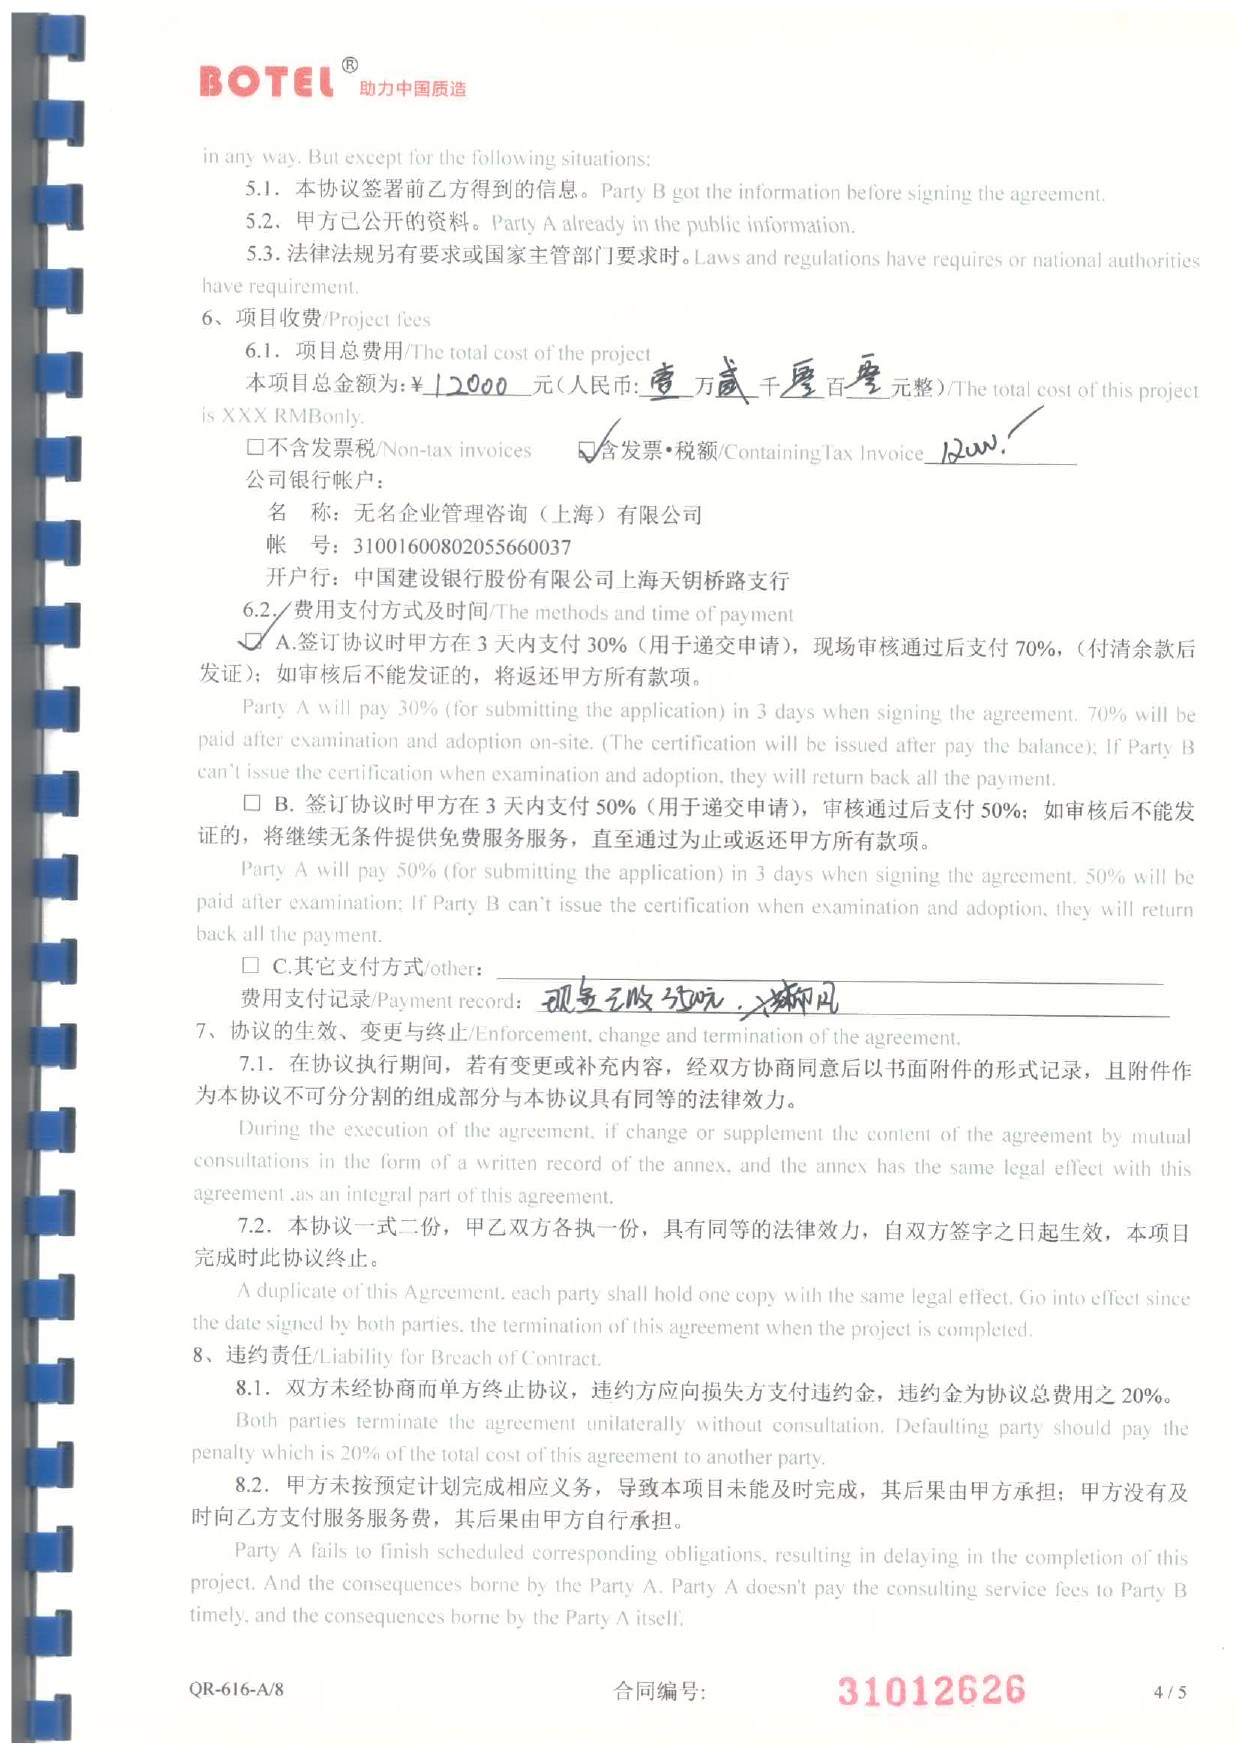 BOTEL® 助力中国质造
in any way. But except for the following situations:
5.1. 本协议签署前乙方得到的信息。Party B got the information before signing the agreement.
5.2. 甲方已公开的资料。Party A already in the public information.
5.3. 法律法规另有要求或国家主管部门要求时。Laws and regulations have requires or national authorities
have requirement.
6、项目收费/Project fees
6.1. 项目总费用/The total cost of the project
本项目总金额为:¥ 12000 元(人民币: 壹 万 贰 千 零 百 零 元整)/The total cost of this project
is XXX RMBonly.
□不含发票税/Non-tax invoices ☑含发票•税额/ContainingTax Invoice
公司银行帐户:
名 称: 无名企业管理咨询（上海）有限公司
帐 号: 31001600802055660037
开户行: 中国建设银行股份有限公司上海天钥桥路支行
6.2. 费用支付方式及时间/The methods and time of payment
☑ A.签订协议时甲方在 3 天内支付 30%（用于递交申请），现场审核通过后支付 70%，（付清余款后
发证）；如审核后不能发证的，将返还甲方所有款项。
Party A will pay 30% (for submitting the application) in 3 days when signing the agreement. 70% will be
paid after examination and adoption on-site. (The certification will be issued after pay the balance); If Party B
can't issue the certification when examination and adoption, they will return back all the payment.
□ B. 签订协议时甲方在 3 天内支付 50%（用于递交申请），审核通过后支付 50%；如审核后不能发
证的，将继续无条件提供免费服务服务，直至通过为止或返还甲方所有款项。
Party A will pay 50% (for submitting the application) in 3 days when signing the agreement. 50% will be
paid after examination; If Party B can't issue the certification when examination and adoption, they will return
back all the payment.
□ C.其它支付方式/other:
费用支付记录/Payment record: 现金已收3500元.
7、协议的生效、变更与终止/Enforcement, change and termination of the agreement.
7.1. 在协议执行期间，若有变更或补充内容，经双方协商同意后以书面附件的形式记录，且附件作
为本协议不可分分割的组成部分与本协议具有同等的法律效力。
During the execution of the agreement, if change or supplement the content of the agreement by mutual
consultations in the form of a written record of the annex, and the annex has the same legal effect with this
agreement .as an integral part of this agreement.
7.2. 本协议一式二份，甲乙双方各执一份，具有同等的法律效力，自双方签字之日起生效，本项目
完成时此协议终止。
A duplicate of this Agreement. each party shall hold one copy with the same legal effect. Go into effect since
the date signed by both parties, the termination of this agreement when the project is completed.
8、违约责任/Liability for Breach of Contract.
8.1. 双方未经协商而单方终止协议，违约方应向损失方支付违约金，违约金为协议总费用之 20%。
Both parties terminate the agreement unilaterally without consultation. Defaulting party should pay the
penalty which is 20% of the total cost of this agreement to another party.
8.2. 甲方未按预定计划完成相应义务，导致本项目未能及时完成，其后果由甲方承担；甲方没有及
时向乙方支付服务服务费，其后果由甲方自行承担。
Party A fails to finish scheduled corresponding obligations, resulting in delaying in the completion of this
project. And the consequences borne by the Party A. Party A doesn't pay the consulting service fees to Party B
timely, and the consequences borne by the Party A itself.
QR-616-A/8 合同编号: 31012626 4 / 5